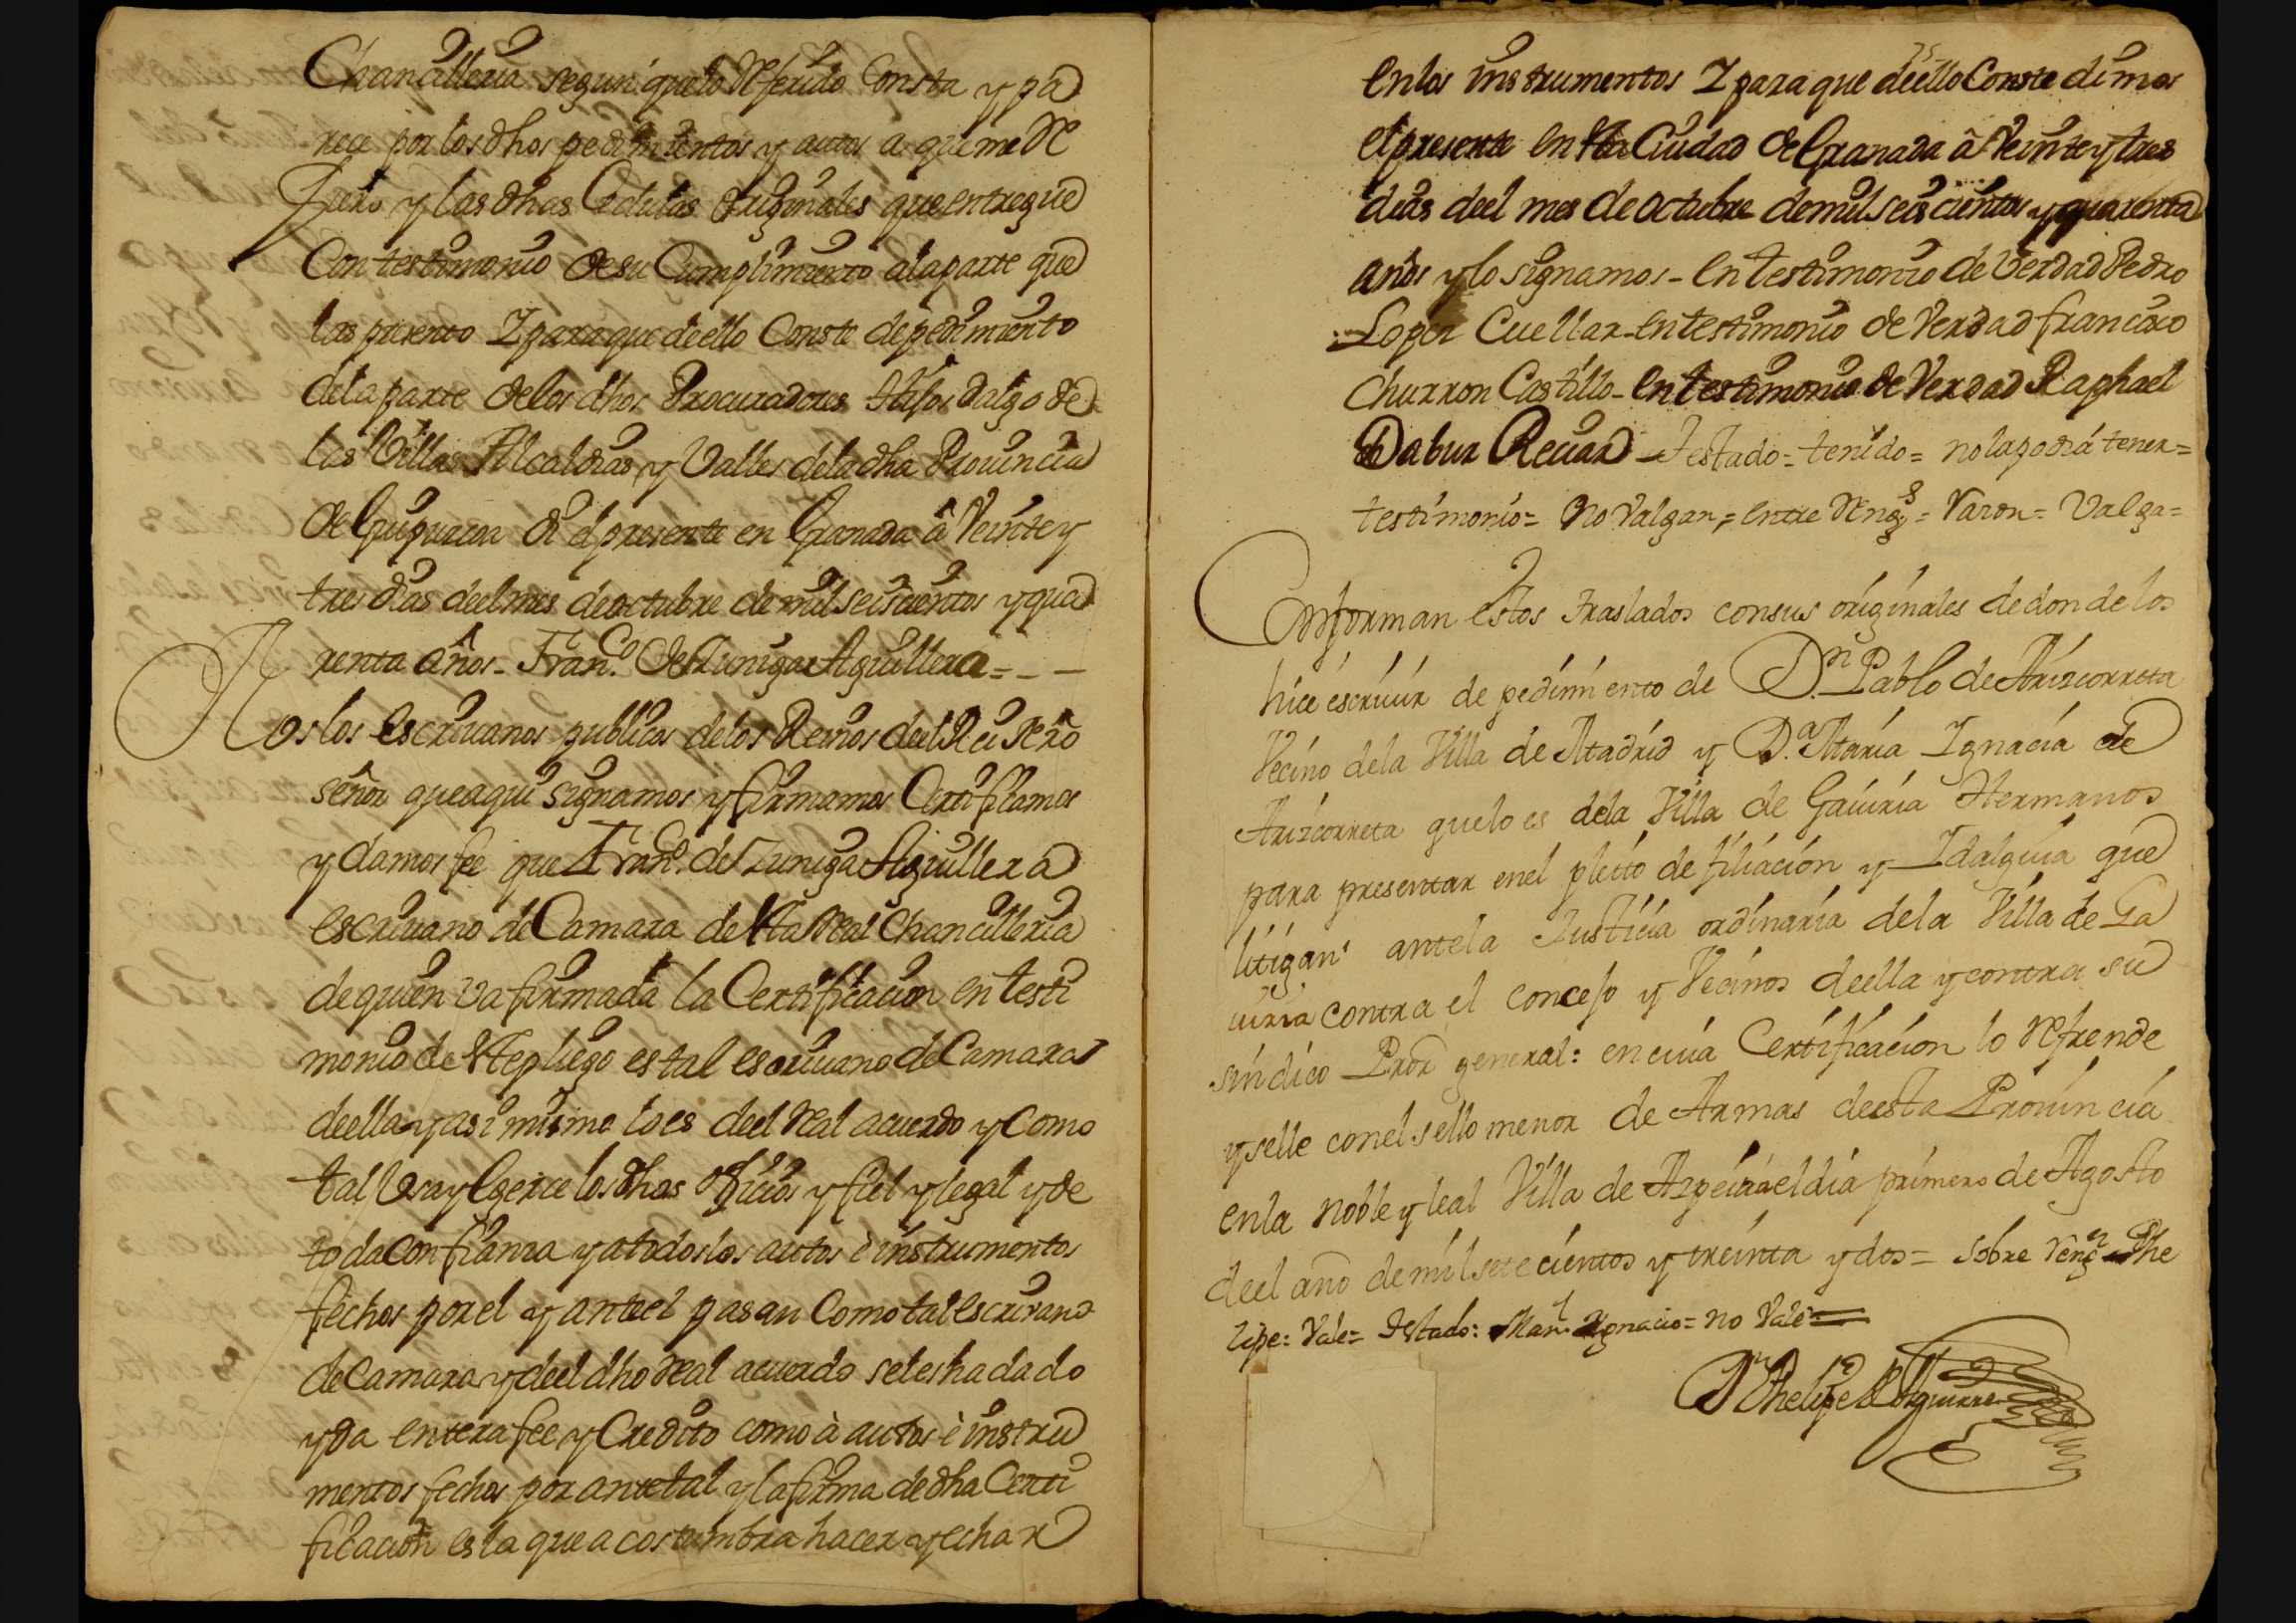 Chancilleria segun que lo Referido Consta y pa
rece por los dhos pedimientos y autos a que me Re
fiero y las dhas Cedulas Originales que entregue
Con testimonio de su Cumplimiento a la parte que
las presento Y para que de ello Conste de pedimiento
de la parte de los dhos Procuradores Hijos dalgo de
las Villas Alcaldias y Valles de la dha Prouincia
de Guipuzcoa di el presente en Granada â Veinte y
tres dias deel mes de octubre de mil seiscientos y qua
renta años - Fran.co de Zuniga Aguillera = - -
Nos los escriuanos publicos de los Reinos deel Rei Nro
señor que aqui signamos y firmamos Certificamos
y damos fee que Fran.co de Zuniga Aguillera
escriuano de Camara de esta Real Chancilleria
de quien va firmada la Certificacion en testi
monio de este pliego es tal escriuano de Camara
de ella y asi mismo lo es deel Real acuerdo y Como
tal Usa y Egerce los dhos Oficios y fiel y legal y de
toda Confianza y a todos los autos è instrumentos
fechos por el y ante el pasan Como tal escriuano
de Camara y deel dho Real acuerdo se les ha dado
y da entera fee y Credito como à autos è instru
mentos fechos por ante tal y la firma de dha Certi
ficacion es la que acostumbra hacer y echar
en los instrumentos Y para que de ello Conste dimos
el presente en esta Ciudad de Granada â Veinte y tres
dias deel mes de octubre de mil seis cientos y quarenta
años y lo signamos - En testimonio de Verdad Pedro
Lopez Cuellar - en testimonio de Verdad francisco
Churron Castillo - En testimonio de Verdad Raphael
Dabur Recuar - Testado = tenido = no la podrá tener =
testimonio = No Valgan, = entre Reng.s = Varon = Valga =
Conforman estos traslados con sus originales de donde los
hice escriuir de pedimiento de D.n Pablo de Arizcorreta
Vecino de la Villa de Madrid y D.a Maria Ignacia de
Arizcorreta que lo es de la Villa de Gauiria Hermanos
para presentar en el pleito de filiacion y Idalguia que
litigan ante la Justicia ordinaria de la Villa de Ga
uiria contra el concejo y Vecinos de ella y contra su
sindico Pror general: en cuia Certificacion lo Refrende
y selle con el sello menor de Armas de esta Prouincia
en la Noble y leal Villa de Azpeitia el dia primero de Agosto
deel año de mil setecientos y treinta y dos = sobre Reng.n = Phe
lipe = Vale = Testado: Man.l Ygnacio = no Vale =
D.n Phelipe de Aguirre